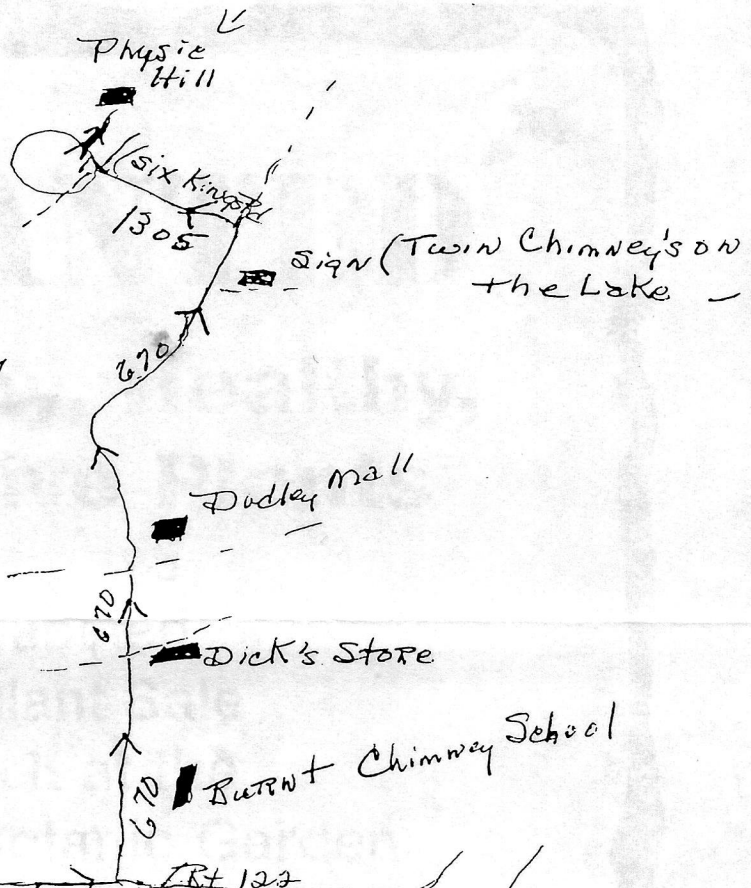 Physic
Hill
(Six Kings Rd
1305
Sign (Twin Chimney's on
the Lake
670
Dudley Mall
670
Dick's Store
Burnt Chimney School
670
Rt 122